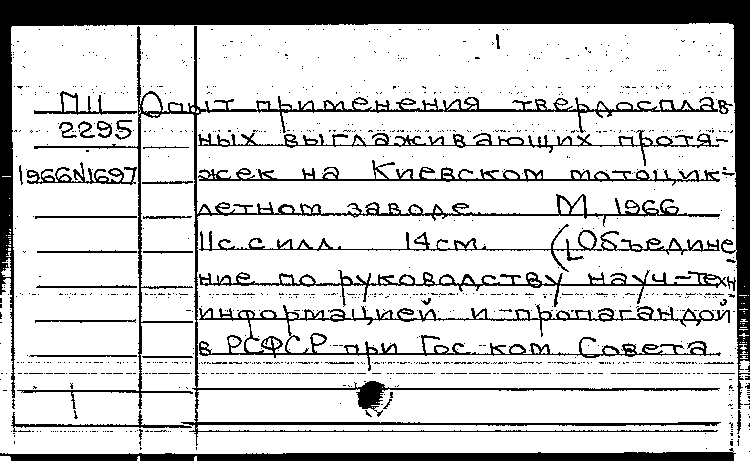 П11 Опыт применения твердосплав
2295 ных выглаживающих протя-
1966N1697 жек на Киевском мотоцик-
летном заводе. М., 1966
11с с илл. 14см. ([Объедине
ние по руководству науч-техн
информацией и пропагандой
в РСФСР при Гос. ком. Совета